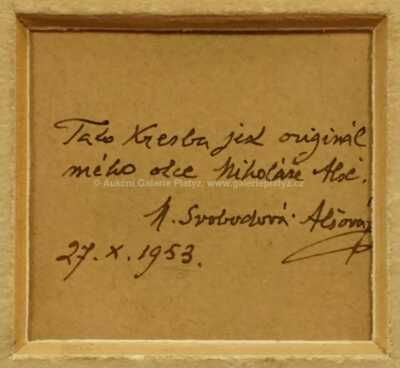 Tato kresba jest originál
mého otce Mikoláše Alše.
© Aukční Galerie Platýz, www.galerieplatyz.cz
M. Svobodová-Alšová
27.X.1953.